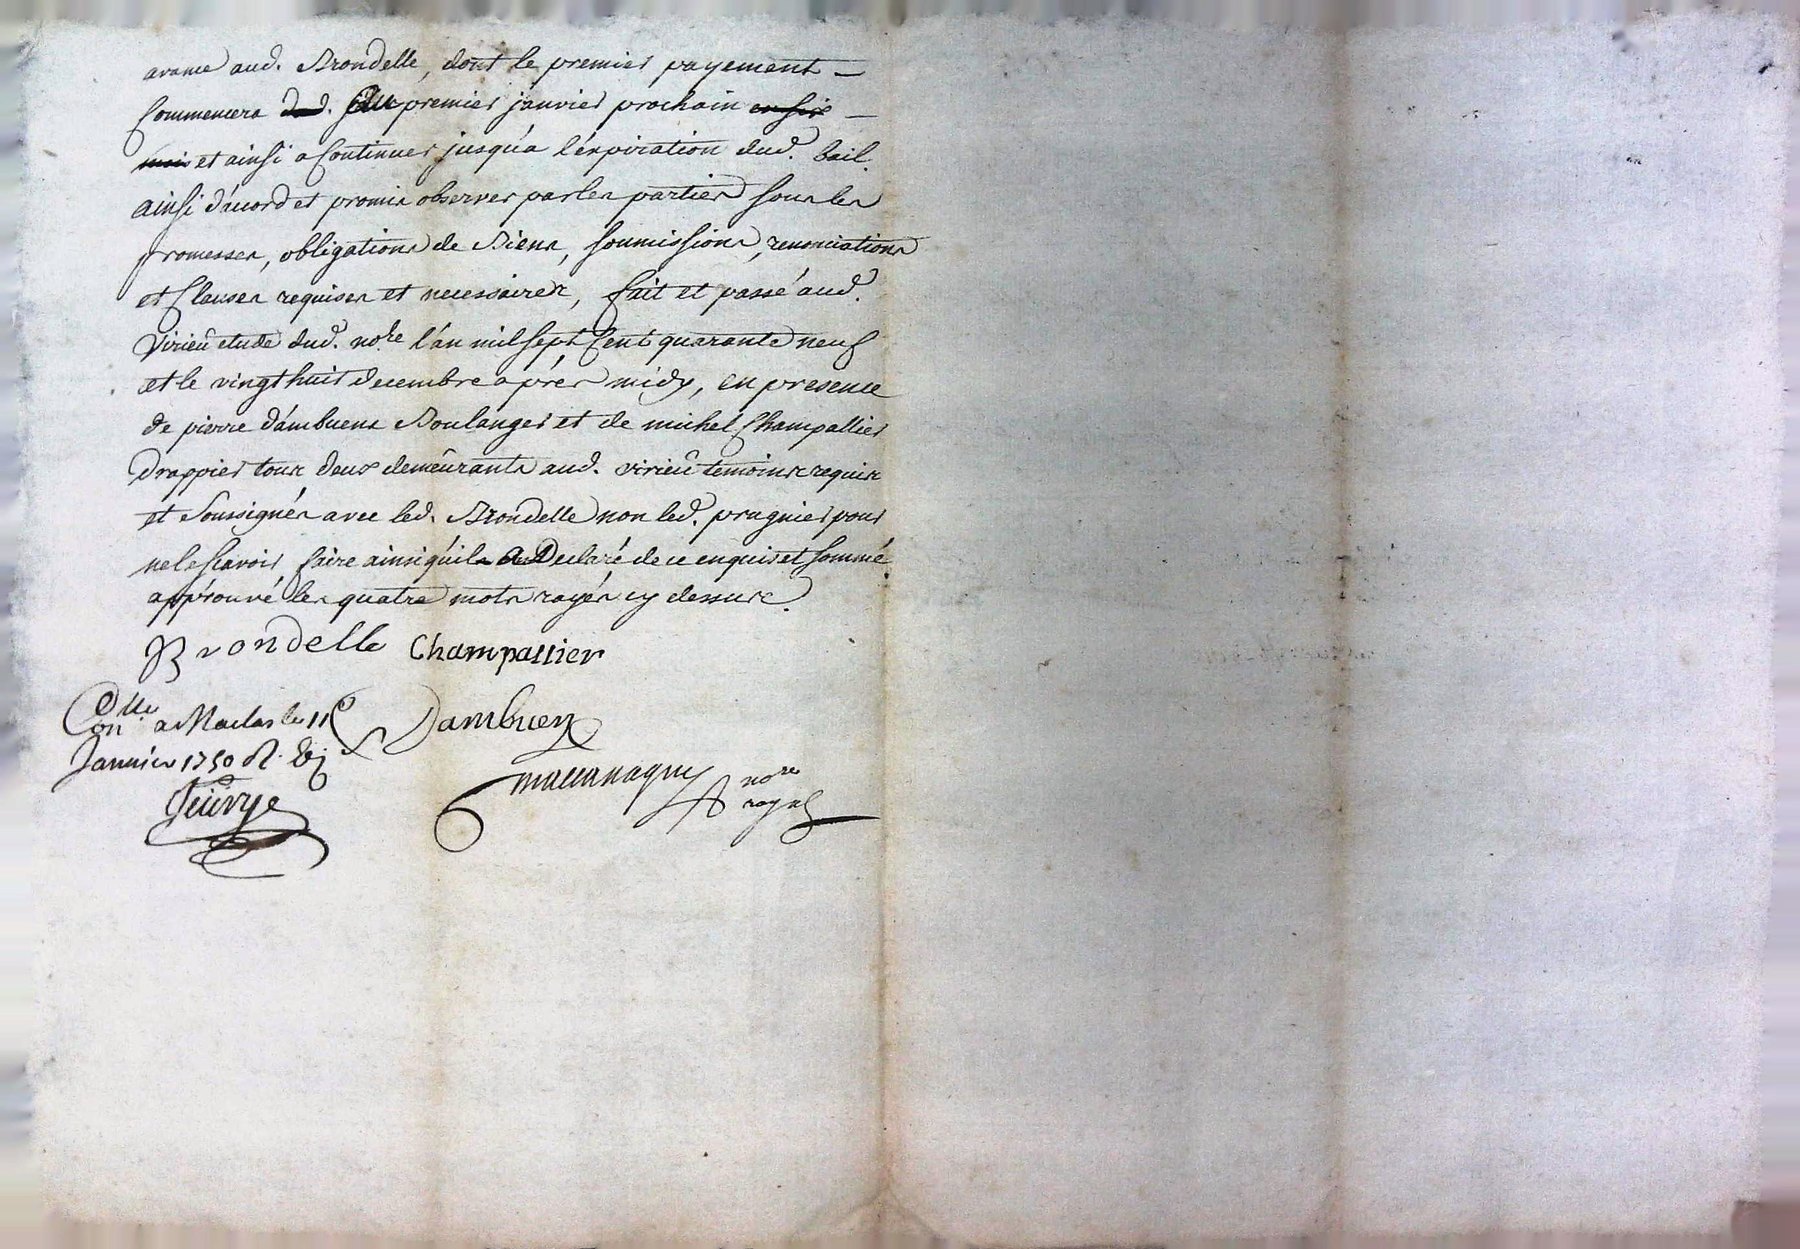 avance aud. Brondelle, dont le premier payement –
commencera au premier janvier prochain en six –
mois et ainsi a continuer jusqu'a l'expiration dud. bail.
ainsi d'accord et promis observer par les parties sous les
promesses, obligations de biens, soumissions, renonciations
et clauses requises et necessaires, fait et passé aud.
Virieû etude dud. nore l'an mil sept cent quarante neuf
et le vingt huit decembre aprés midy, en presence
de pierre d'ambuens Boulanger et de michel Champallier
Drappier tous deux demeûrants aud. virieû temoins requis
et soussignés avec led. Brondelle non led. prugnier pour
ne le scavoir faire ainsi qu'il a Declaré de ce enquis et sommé
approuvé les quatre mots rayés cy dessus.
Brondelle Champallier
Conlle a Maclas le 11e Dambuen
Janvier 1750
nore
royal